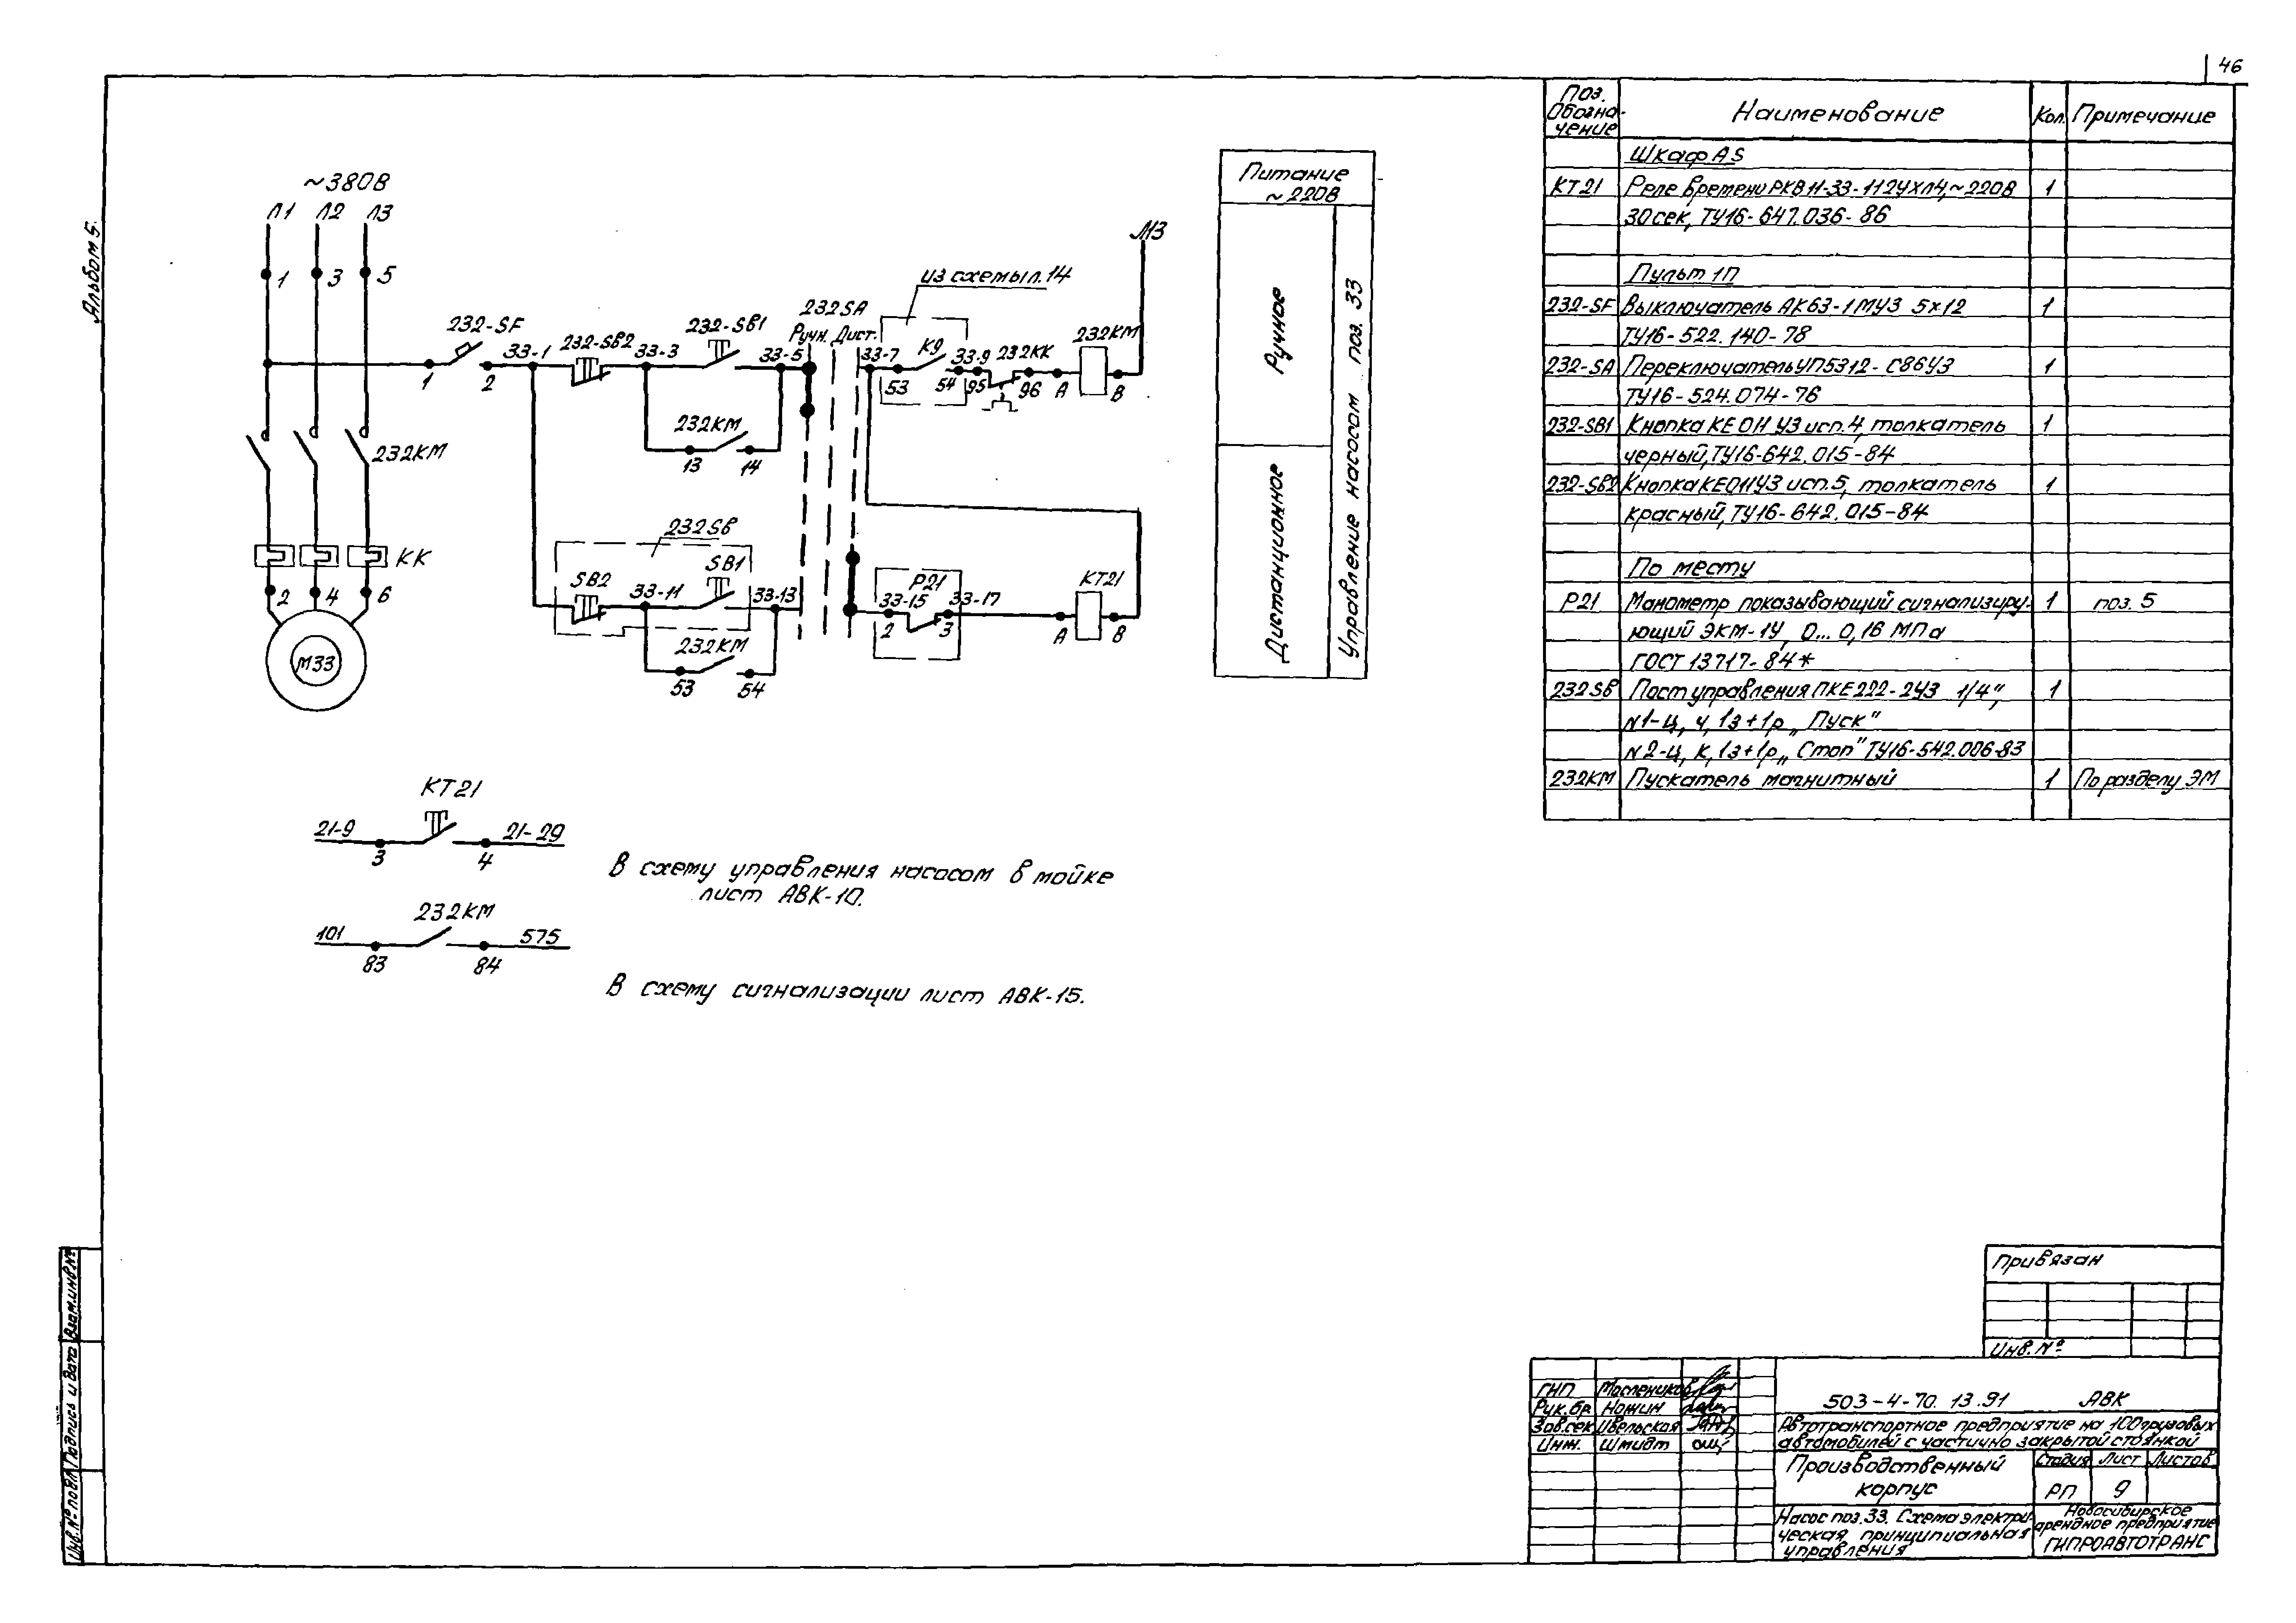 46
Альбом 5.
~380В
Л1 Л2 Л3
1 3 5
232КМ
КК
2 4 6
М33
232-SF
1 2
33-1
232-SB2
33-3
232-SB1
33-5
232SA
Ручн. Дист.
из схемы л.14
33-7
К9
33-9
232КК
232КМ
53 54 95 96 А В
N3
232КМ
13 14
232SB
SB2
33-11
SB1
33-13
232КМ
53 54
Р21
33-15 33-17
2 3
КТ21
А В
Питание
~220В
Ручное
Дистанционное
Управление насосом поз. 33
КТ21
21-9 21-29
3 4
В схему управления насосом в мойке
лист АВК-10.
232КМ
101 575
83 84
В схему сигнализации лист АВК-15.
Поз. Обозна-чение Наименование Кол. Примечание
Шкаф AS
КТ21 Реле времени РКВ11-33-112УХЛ4,~220В 1
30сек, ТУ16-647.036-86
Пульт 1П
232-SF Выключатель АК63-1МУ3 5х12 1
ТУ16-522.140-78
232-SA Переключатель УП5312-С86У3 1
ТУ16-524.074-76
232-SB1 Кнопка КЕ 011 У3 исп.4, толкатель 1
черный, ТУ16-642.015-84
232-SB2 Кнопка КЕ011У3 исп.5, толкатель 1
красный, ТУ16-642.015-84
По месту
Р21 Манометр показывающий сигнализиру- 1 поз. 5
ющий ЭКМ-1У, 0...0,16 МПа
ГОСТ 13717-84*
232SB Пост управления ПКЕ222-2У3 1/4", 1
N1-Ц, ч, 1з+1р „Пуск"
N2-Ц, К, 1з+1р „Стоп" ТУ16-542.006-83
232КМ Пускатель магнитный 1 По разделу ЭМ
Привязан
Инв. №
ГИП Маслеников
Рук.бр Ножин
Зав.сек Ивельская
Инж. Шмидт
503-4-70.13.91 АВК
Автотранспортное предприятие на 100 грузовых
автомобилей с частично закрытой стоянкой
Производственный
корпус
Стадия Лист Листов
РП 9
Насос поз.33. Схема электри-
ческая принципиальная
управления
Новосибирское
арендное предприятие
ГИПРОАВТОТРАНС
Инв.№ подл. Подпись и дата Взам.инв.№